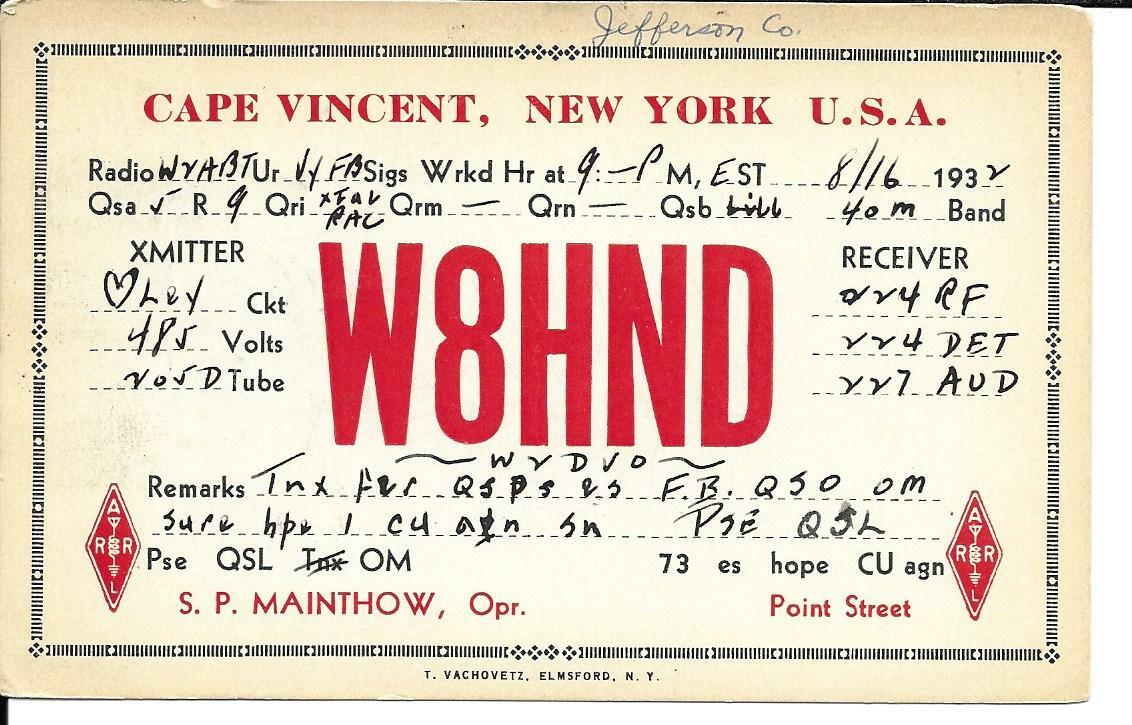 Jefferson Co.
CAPE VINCENT, NEW YORK U.S.A.
Radio W2ABT Ur Vy FB Sigs Wrkd Hr at 9:— P M, EST 8/16 1932
Qsa 5 R 9 Qri xtal RAC Qrm — Qrn — Qsb 40 m Band
XMITTER RECEIVER
♡Ley Ckt 224 RF
485 Volts 224 DET
205D Tube 227 AUD
W8HND
~ W2DVO ~
Remarks Tnx fer QSPs es F.B. QSO OM
sure hpe I cu agn sn Pse QSL
Pse QSL Tnx OM 73 es hope CU agn
S. P. MAINTHOW, Opr. Point Street
A R R L
A R R L
T. VACHOVETZ, ELMSFORD, N. Y.